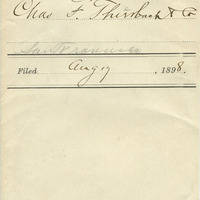 Chas F. Thirsbach & Co
San Francisco
Filed Aug 19, 1898.